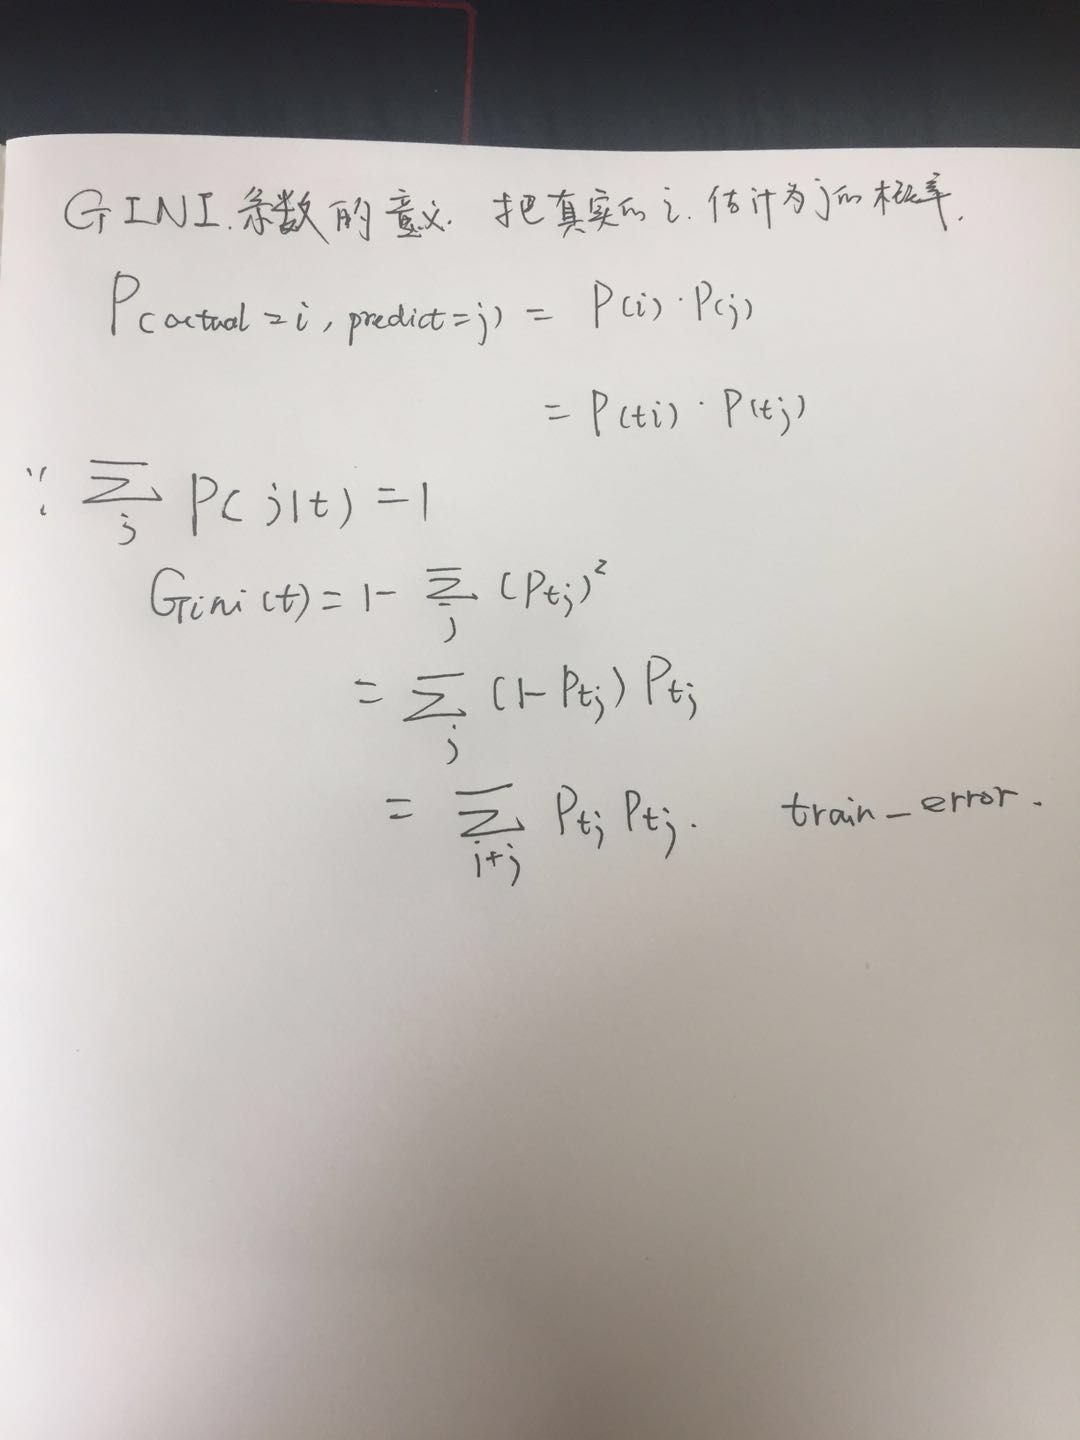 GINI.系数的意义. 把真实的i.估计为j的概率.
P(actual=i, predict=j) = P(i)·P(j)
= P(ti)·P(tj)
∵ Σ_j P(j|t)=1
Gini(t)=1-Σ_j (Ptj)²
=Σ_j (1-Ptj)Ptj
=Σ_{i≠j} Ptj Ptj. train_error.